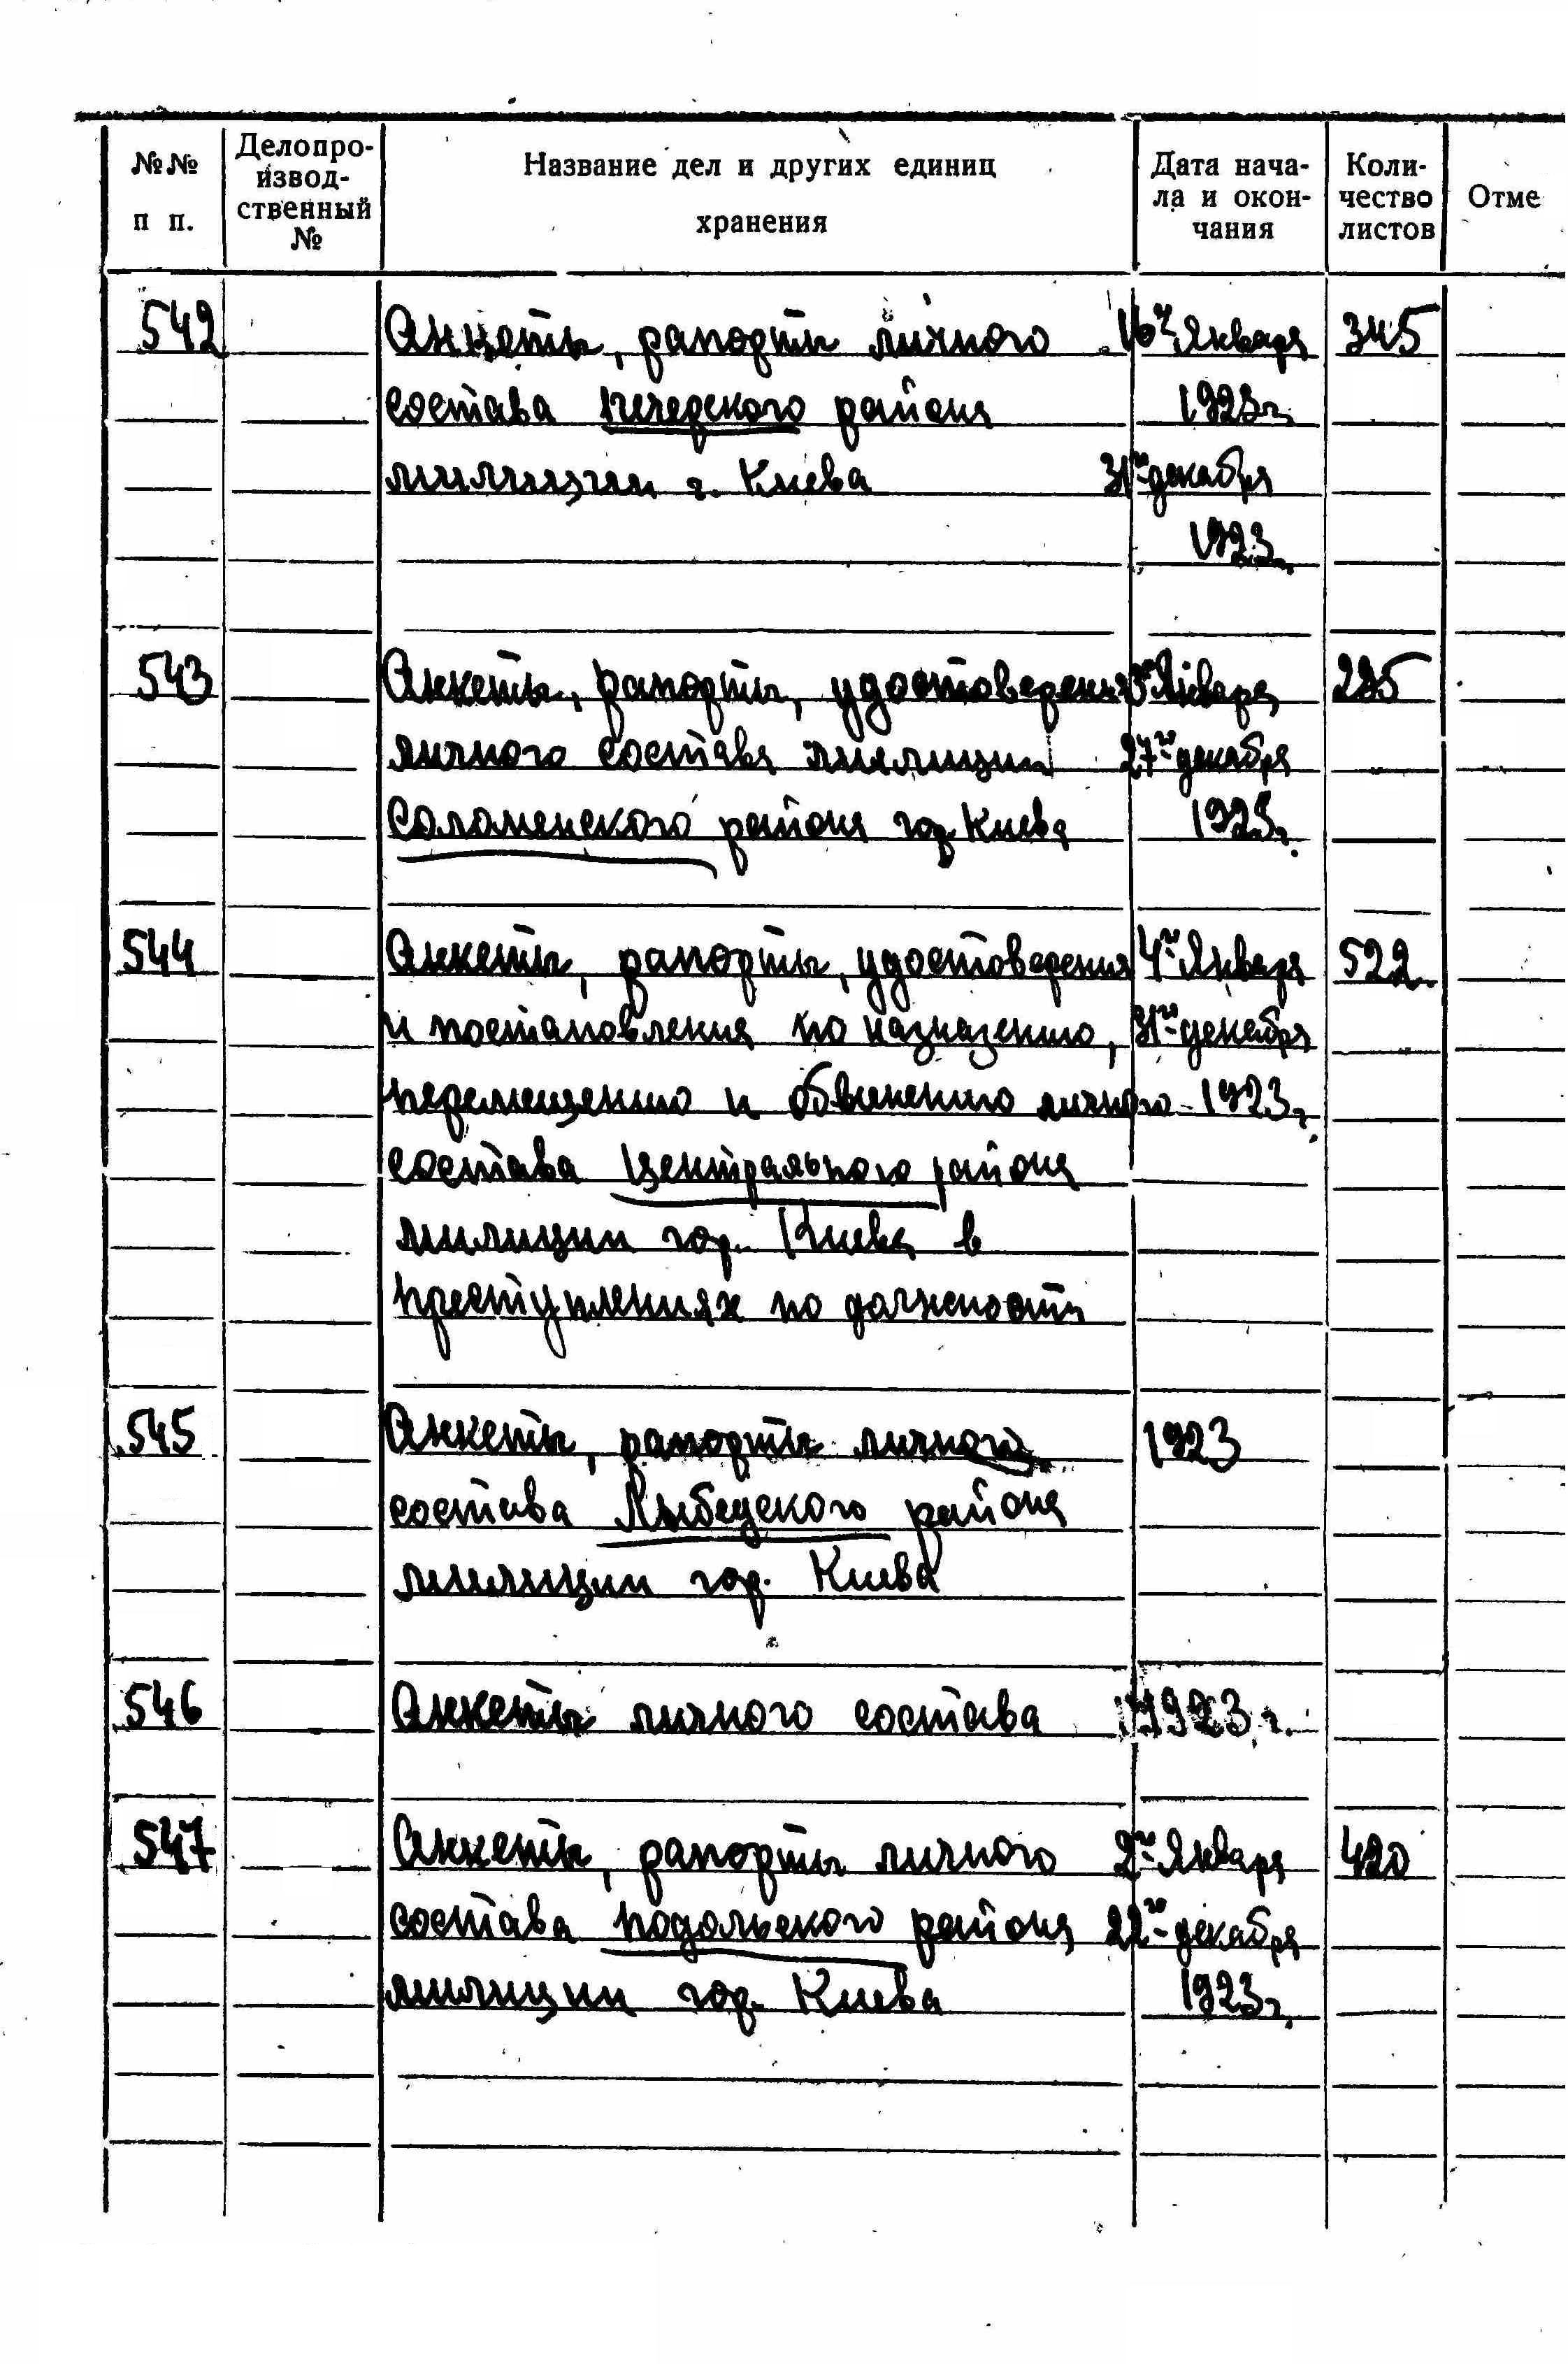 №№ п п.
Делопро-
извод-
ственный
№
Название дел и других единиц
хранения
Дата нача-
ла и окон-
чания
Коли-
чество
листов
Отме
542 Анкеты, рапорты личного 16го Января 345
состава печерского района 1923г.
милиции г. Киева 31го декабря
1923
543 Анкеты, рапорты, удостоверения 3го Января 225
личного состава милиции 27го декабря
Соломенского района гор Киева 1923г.
544 Анкеты, рапорты, удостоверения 4го Января 522
и постановления по назначению, 31го декабря
перемещению и обвинению личного 1923г.
состава Центрального района
милиции гор. Киева в
преступлениях по должности
545 Анкеты, рапорты личного 1923
состава Лыбедского района
милиции гор. Киева
546 Анкеты личного состава 1923 г.
547 Анкеты, рапорты личного 2го Января 420
состава подольского района 22го декабря
милиции гор. Киева 1923г.